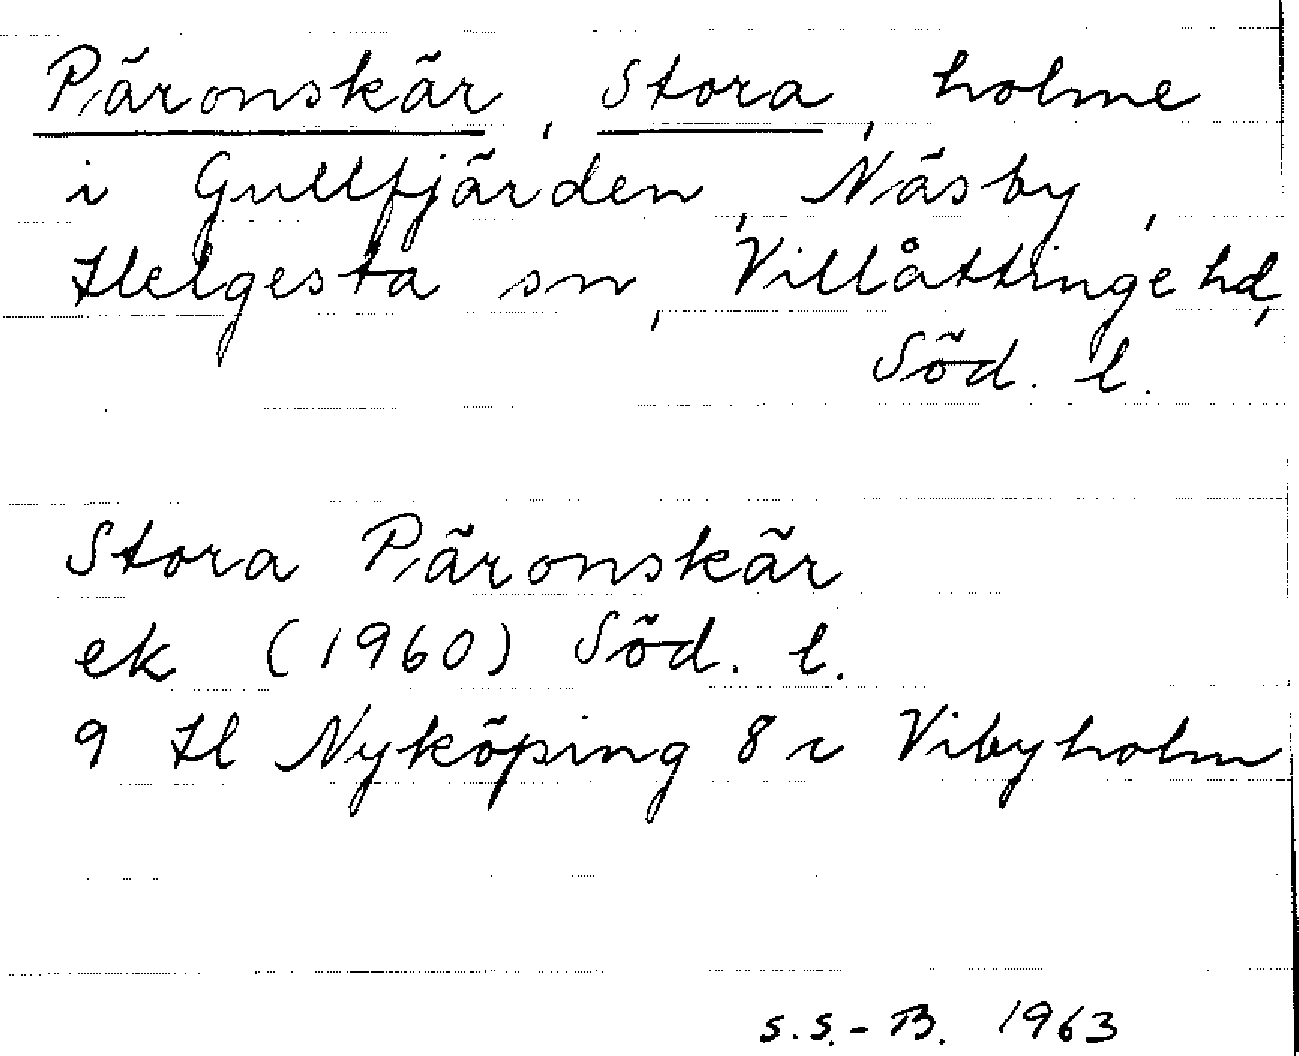 Päronskär, Stora, holme
i Gullfjärden, Näsby,
Helgesta sn, Villåttinge hd,
Söd. l.
Stora Päronskär
ek (1960) Söd. l.
9 H l Nyköping 8 c Vibyholm
s.s.-B. 1963